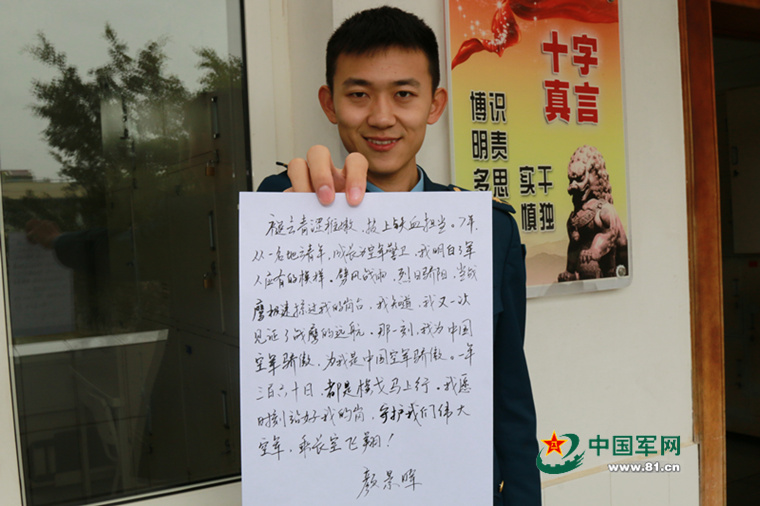 十字
真言
博识
明责
多思
实干
慎独
褪去青涩稚嫩，披上铁血担当。7年，
从一名地方青年，成长为空军警卫，我明白了军
人应有的模样。栉风战雨，烈日骄阳，当战
鹰极速掠过我的岗台，我知道，我又一次
见证了战鹰的远航。那一刻，我为中国
空军骄傲，为我是中国空军骄傲。一年
三百六十日，都是横戈马上行。我愿
时刻站好我的岗，守护我们伟大
空军，乘长空飞翔！
颜景晖
中国军网
www.81.cn